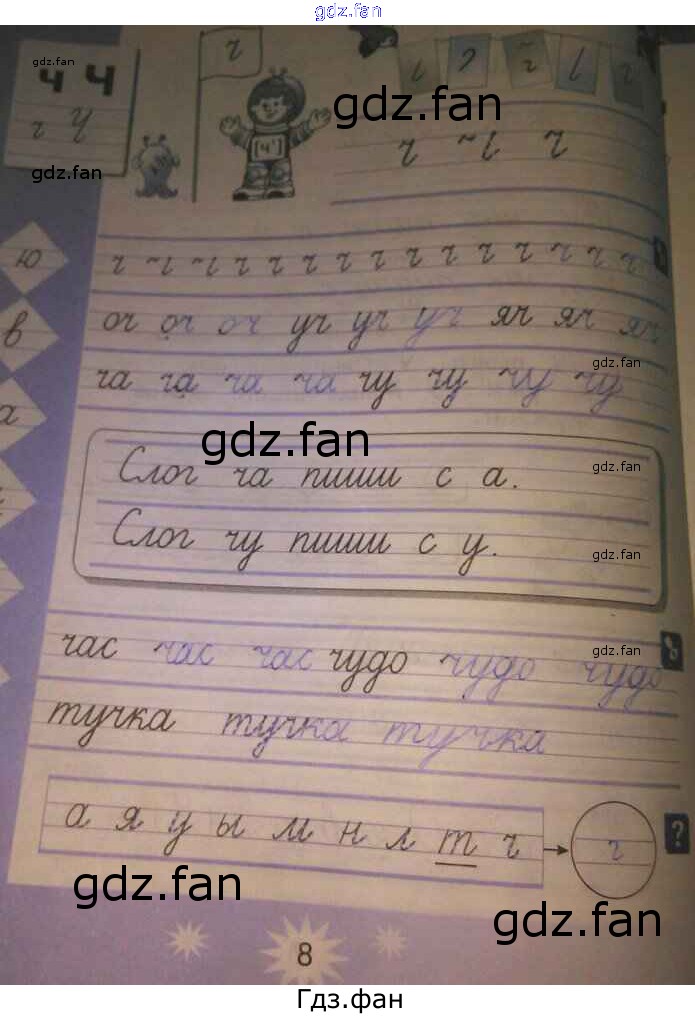 gdz.fan
gdz.fan
ч ч
ч Ч
gdz.fan
ч
[ч']
gdz.fan
ч ч ч
ю
ч ч ч ч ч ч ч ч ч ч ч ч ч ч ч
в
оч оч оч уч уч уч яч яч яч
gdz.fan
ча ча ча ча чу чу чу чу
а
gdz.fan
Слог ча пиши с а.
gdz.fan
Слог чу пиши с у.
gdz.fan
час час час чудо чудо чудо
gdz.fan
тучка тучка тучка
а я у ы м н л т ч ч
?
gdz.fan
gdz.fan
8
Гдз.фан